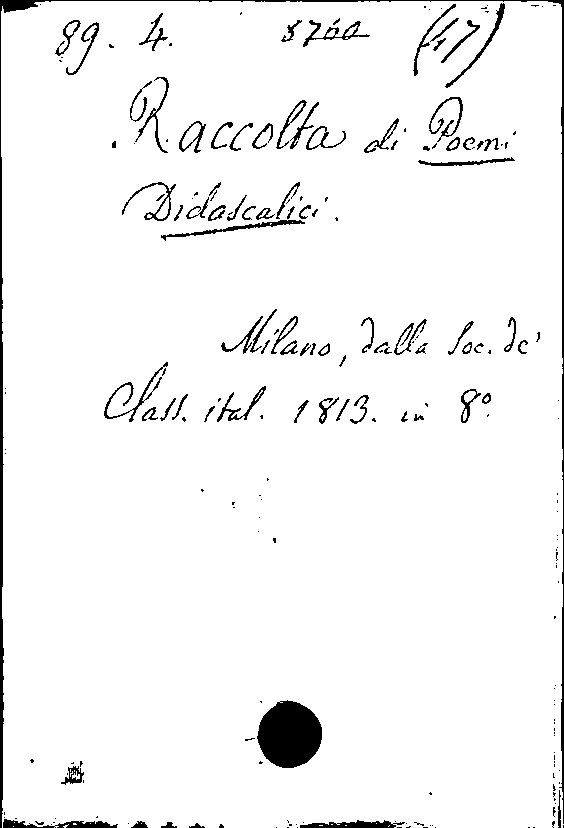 89. 4. 5760 (47)
Raccolta di Poemi
Didascalici.
Milano, dalla Soc. de'
Class. ital. 1813. in 8º